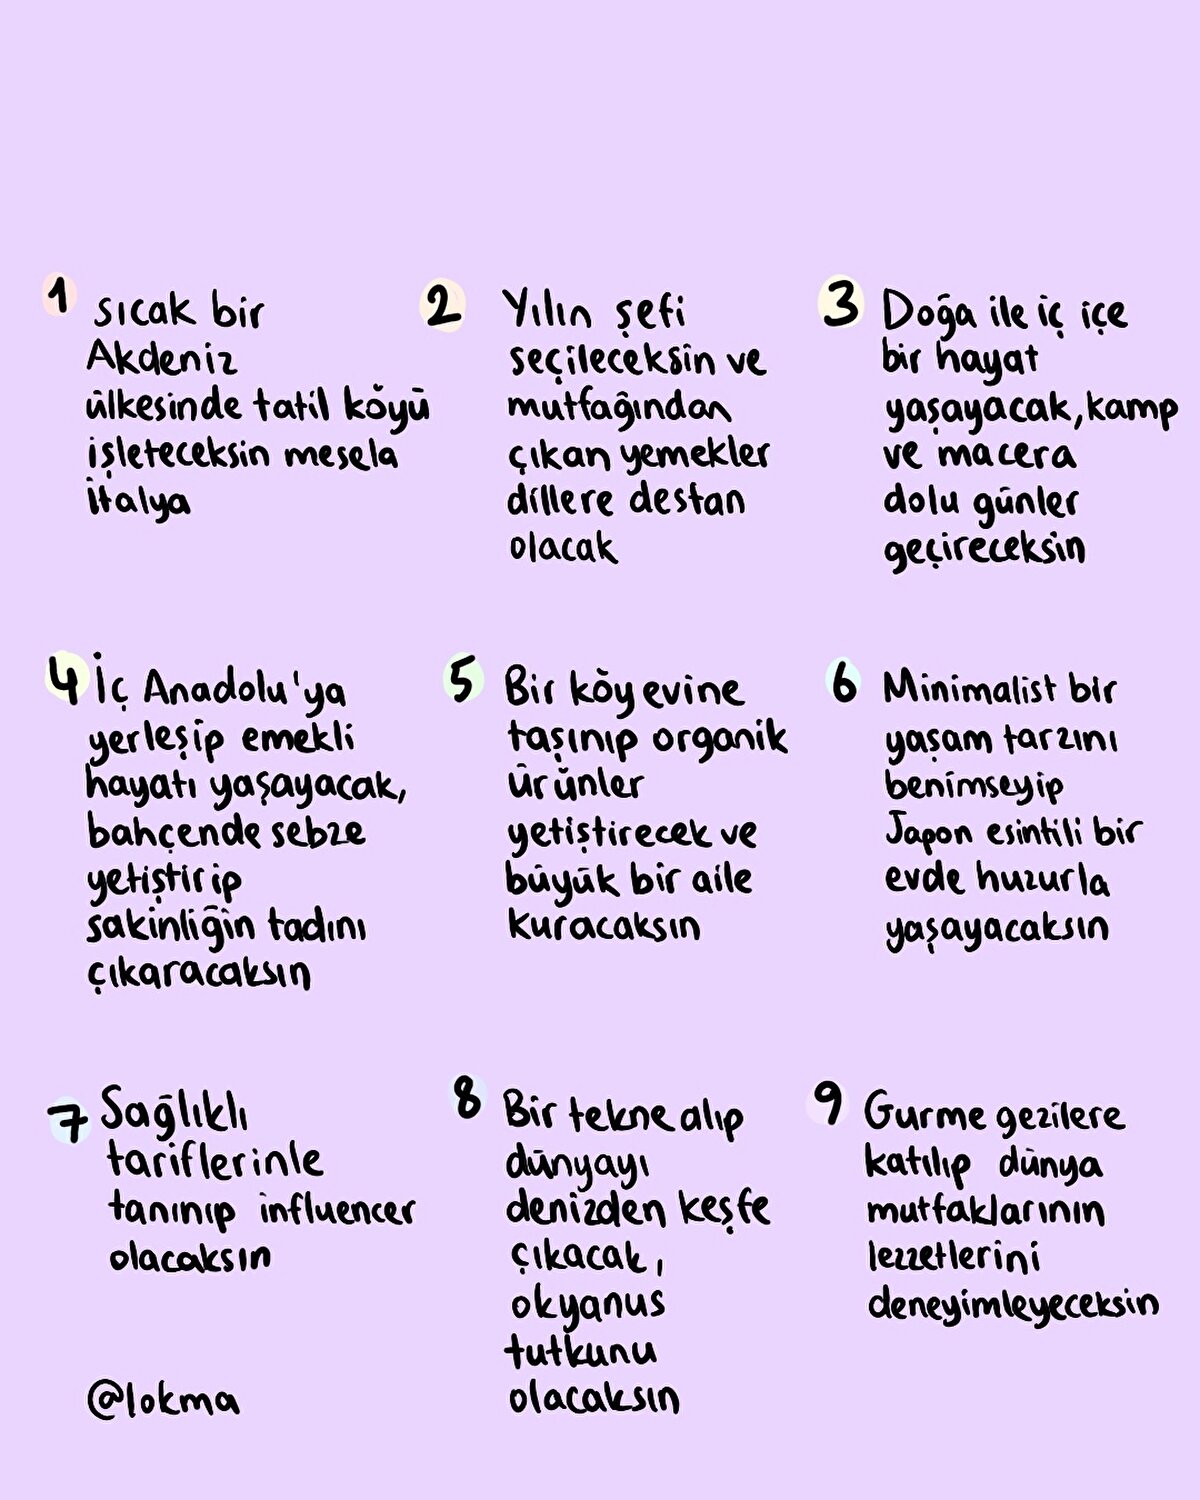 1 sıcak bir
Akdeniz
ülkesinde tatil köyü
işleteceksin mesela
İtalya
2 Yılın şefi
seçileceksin ve
mutfağından
çıkan yemekler
dillere destan
olacak
3 Doğa ile iç içe
bir hayat
yaşayacak, kamp
ve macera
dolu günler
geçireceksin
4 İç Anadolu'ya
yerleşip emekli
hayatı yaşayacak,
bahçende sebze
yetiştirip
sakinliğin tadını
çıkaracaksın
5 Bir köy evine
taşınıp organik
ürünler
yetiştirecek ve
büyük bir aile
kuracaksın
6 Minimalist bir
yaşam tarzını
benimseyip
Japon esintili bir
evde huzurla
yaşayacaksın
7 Sağlıklı
tariflerinle
tanınıp influencer
olacaksın
8 Bir tekne alıp
dünyayı
denizden keşfe
çıkacak,
okyanus
tutkunu
olacaksın
9 Gurme gezilere
katılıp dünya
mutfaklarının
lezzetlerini
deneyimleyeceksin
@lokma